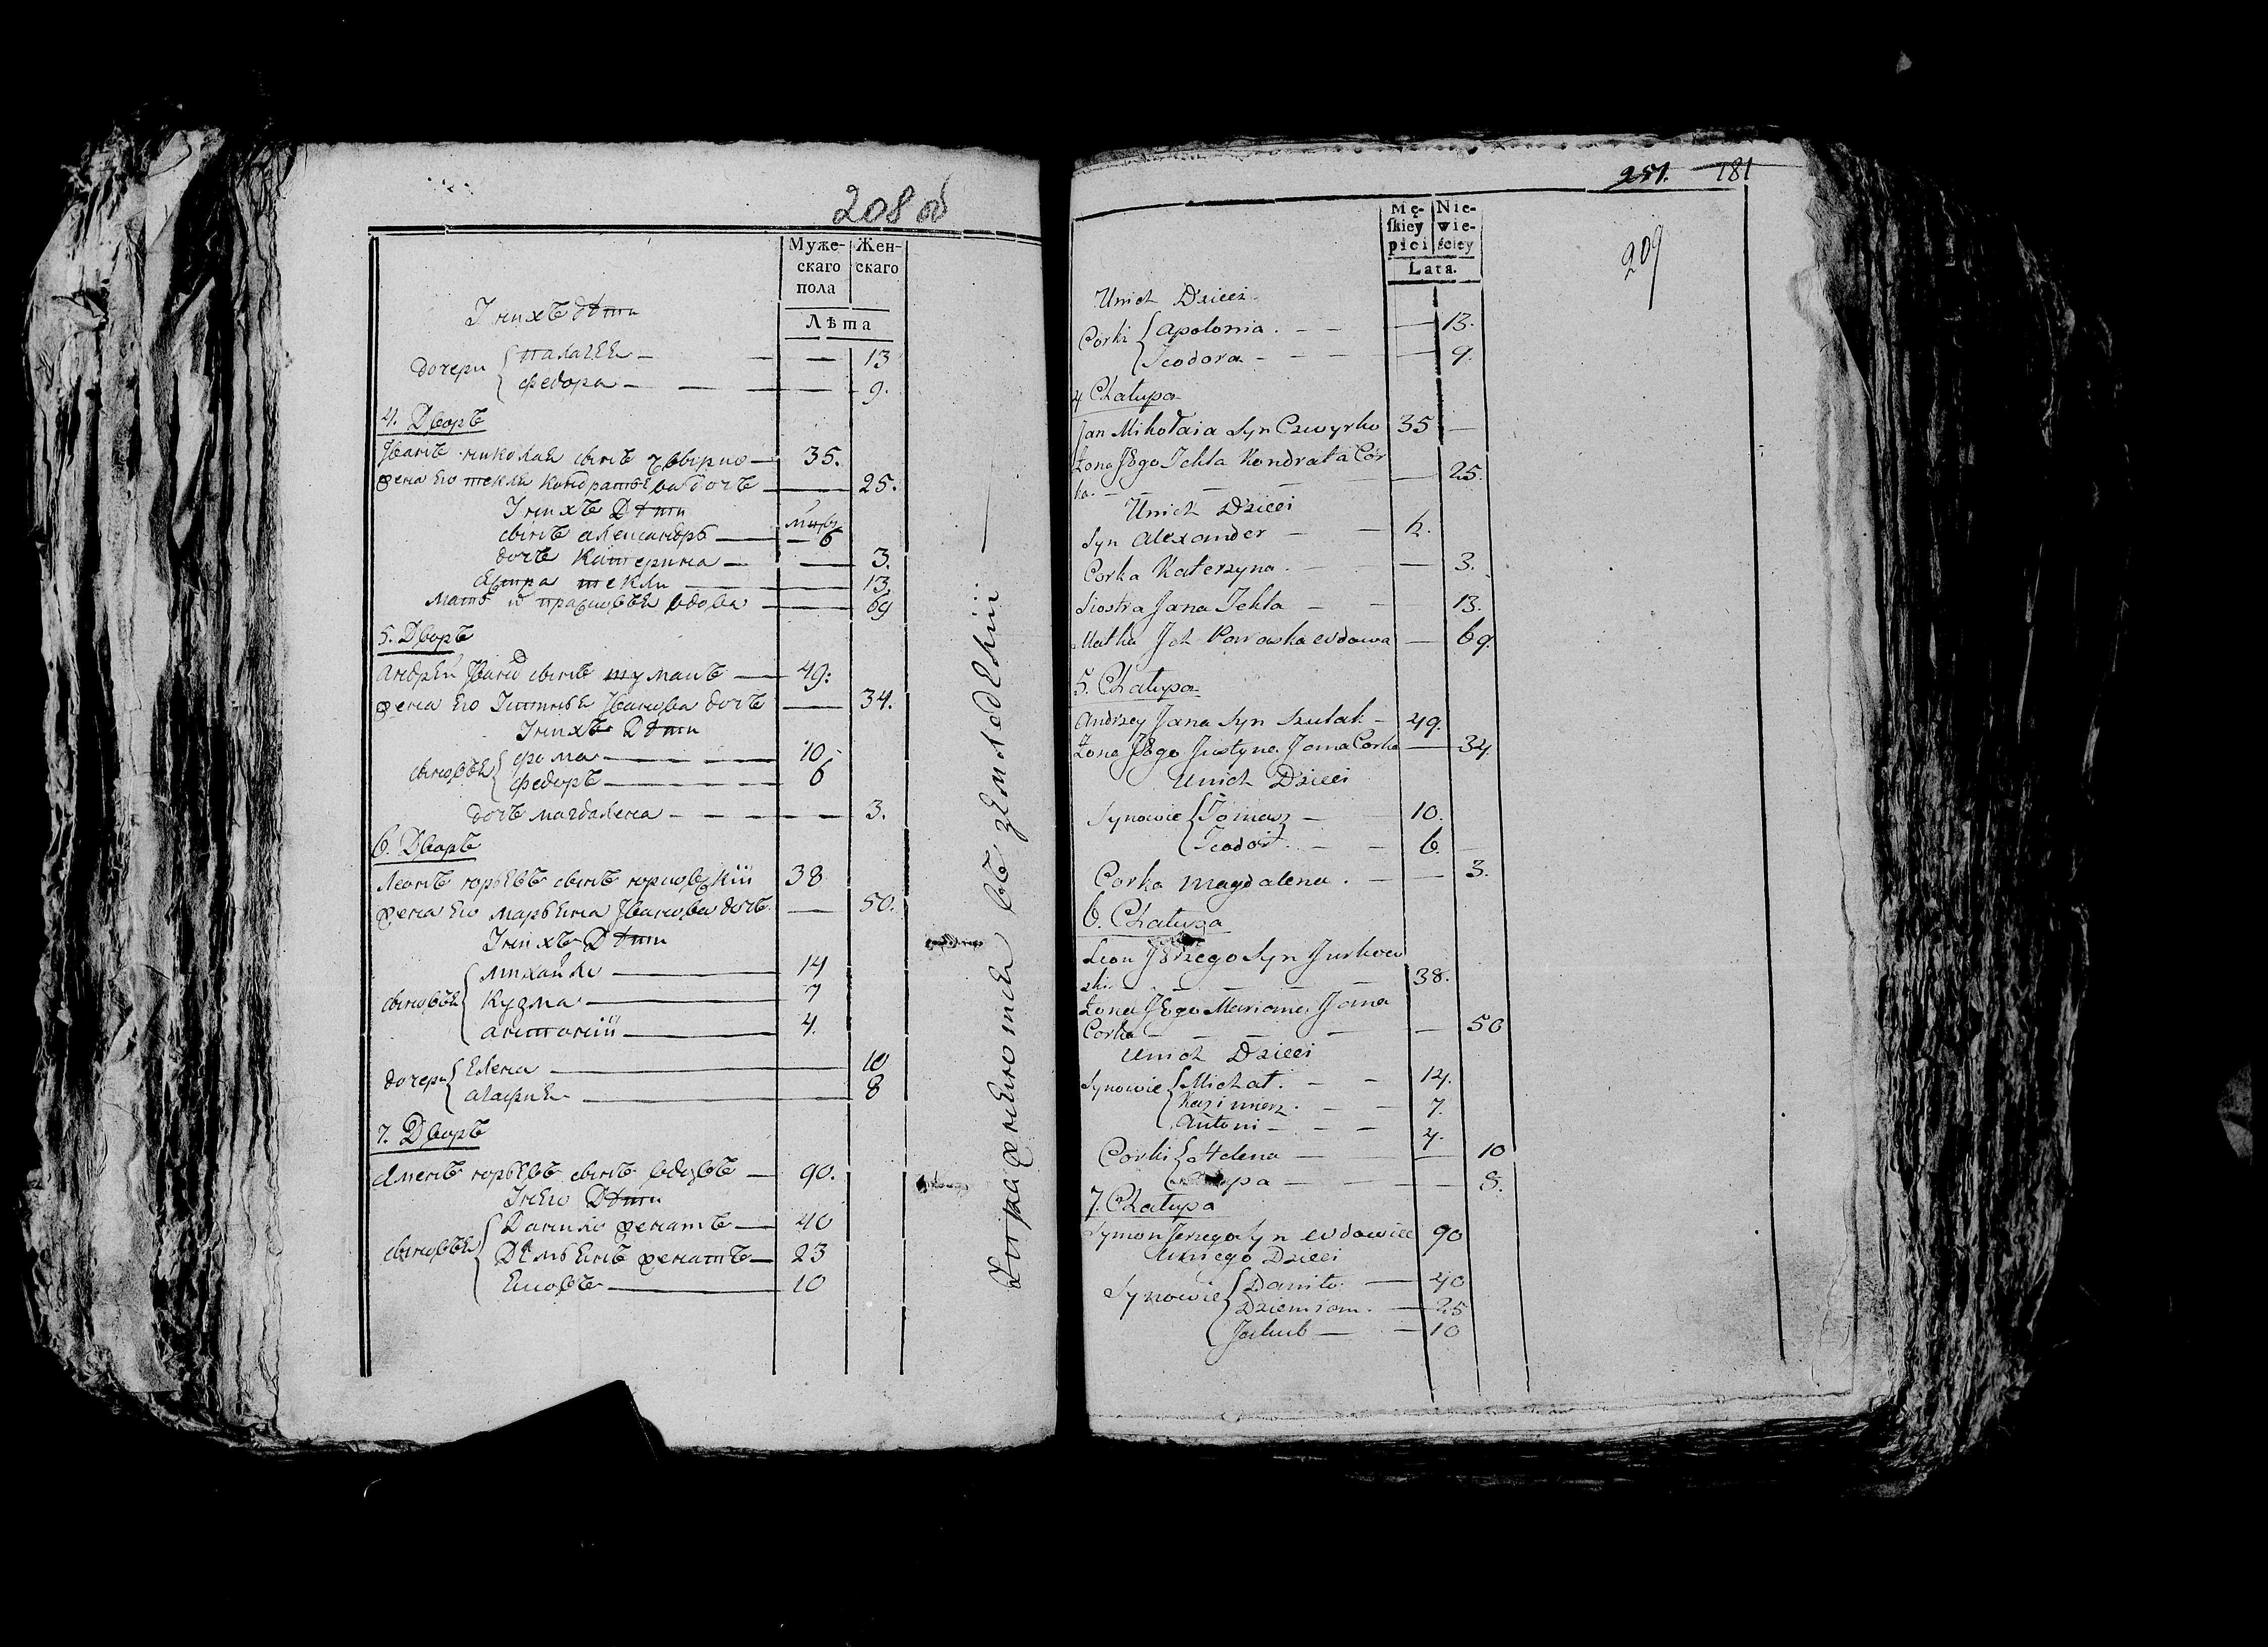 208 об
Муже-
скаго
пола
Жен-
скаго
Лѣта
У нихъ дѣти
дочери палагея — 13
федора — 9.
4. Дворъ
Иванъ николая сынъ — 35.
жена его текля кондратьева дочъ — 25.
У нихъ Дѣти
сынъ александръ — 6
дочъ катерина — 3.
сестра текли — 13
мать и вдова — 69
5. Дворъ
андрей Ивана сынъ — 49.
жена его Устинья Иванова дочъ — 34.
У нихъ Дѣти
сыновья фома — 10
федоръ — 6
дочъ магдалена — 3.
6. Дворъ
леонъ юрьевъ сынъ 38
жена его марьяна Иванова дочъ — 50.
У нихъ Дѣти
сыновья михайло — 14
кузма — 7
антоній — 4.
дочери елена — 10
агафия — 8
7. Дворъ
юрьевъ сынъ вдовъ — 90.
У него Дѣти
сыновья Данило женатъ — 40
Демьянъ женатъ — 23
— 10
въ земледѣліи
251. 181
209
Mę-
skiey
płci
Nie-
wie-
ściey
Lata.
Unich Dzieci
Corki Apolonia. — 13.
Teodora — 9.
4 Chałupa
Jan Mikołaia Syn Czwyrko 35 —
Żona Jego Tekla Kondrata Cór
ka. — 25.
Unich Dzieci
Syn Alexander —
Corka Katerzyna. — 3.
Siostra Jana Tekla — 13.
Matka Ich wdowa — 69.
5. Chałupa
Andrzey Jana Syn — 49.
Żona Jego Justyna Jana Corka — 34.
Unich Dzieci
Synowie Tomasz — 10.
Teodor. — 6.
Corka Magdalena. — 3.
6. Chałupa
Leon Jerzego Syn Jurkow
ski. — 38.
Żona Jego Mariana Jana
Corka — 50
Unich Dzieci
Synowie Michał. — 14.
Kazimierz. — 7.
Antoni — 4.
Corki Helena — 10
— 8.
7. Chałupa
Symon Jerzego Syn wdowiec 90
Uniego Dzieci
Synowie Daniło. — 40
Dziemian. — 25
Jakub — 10